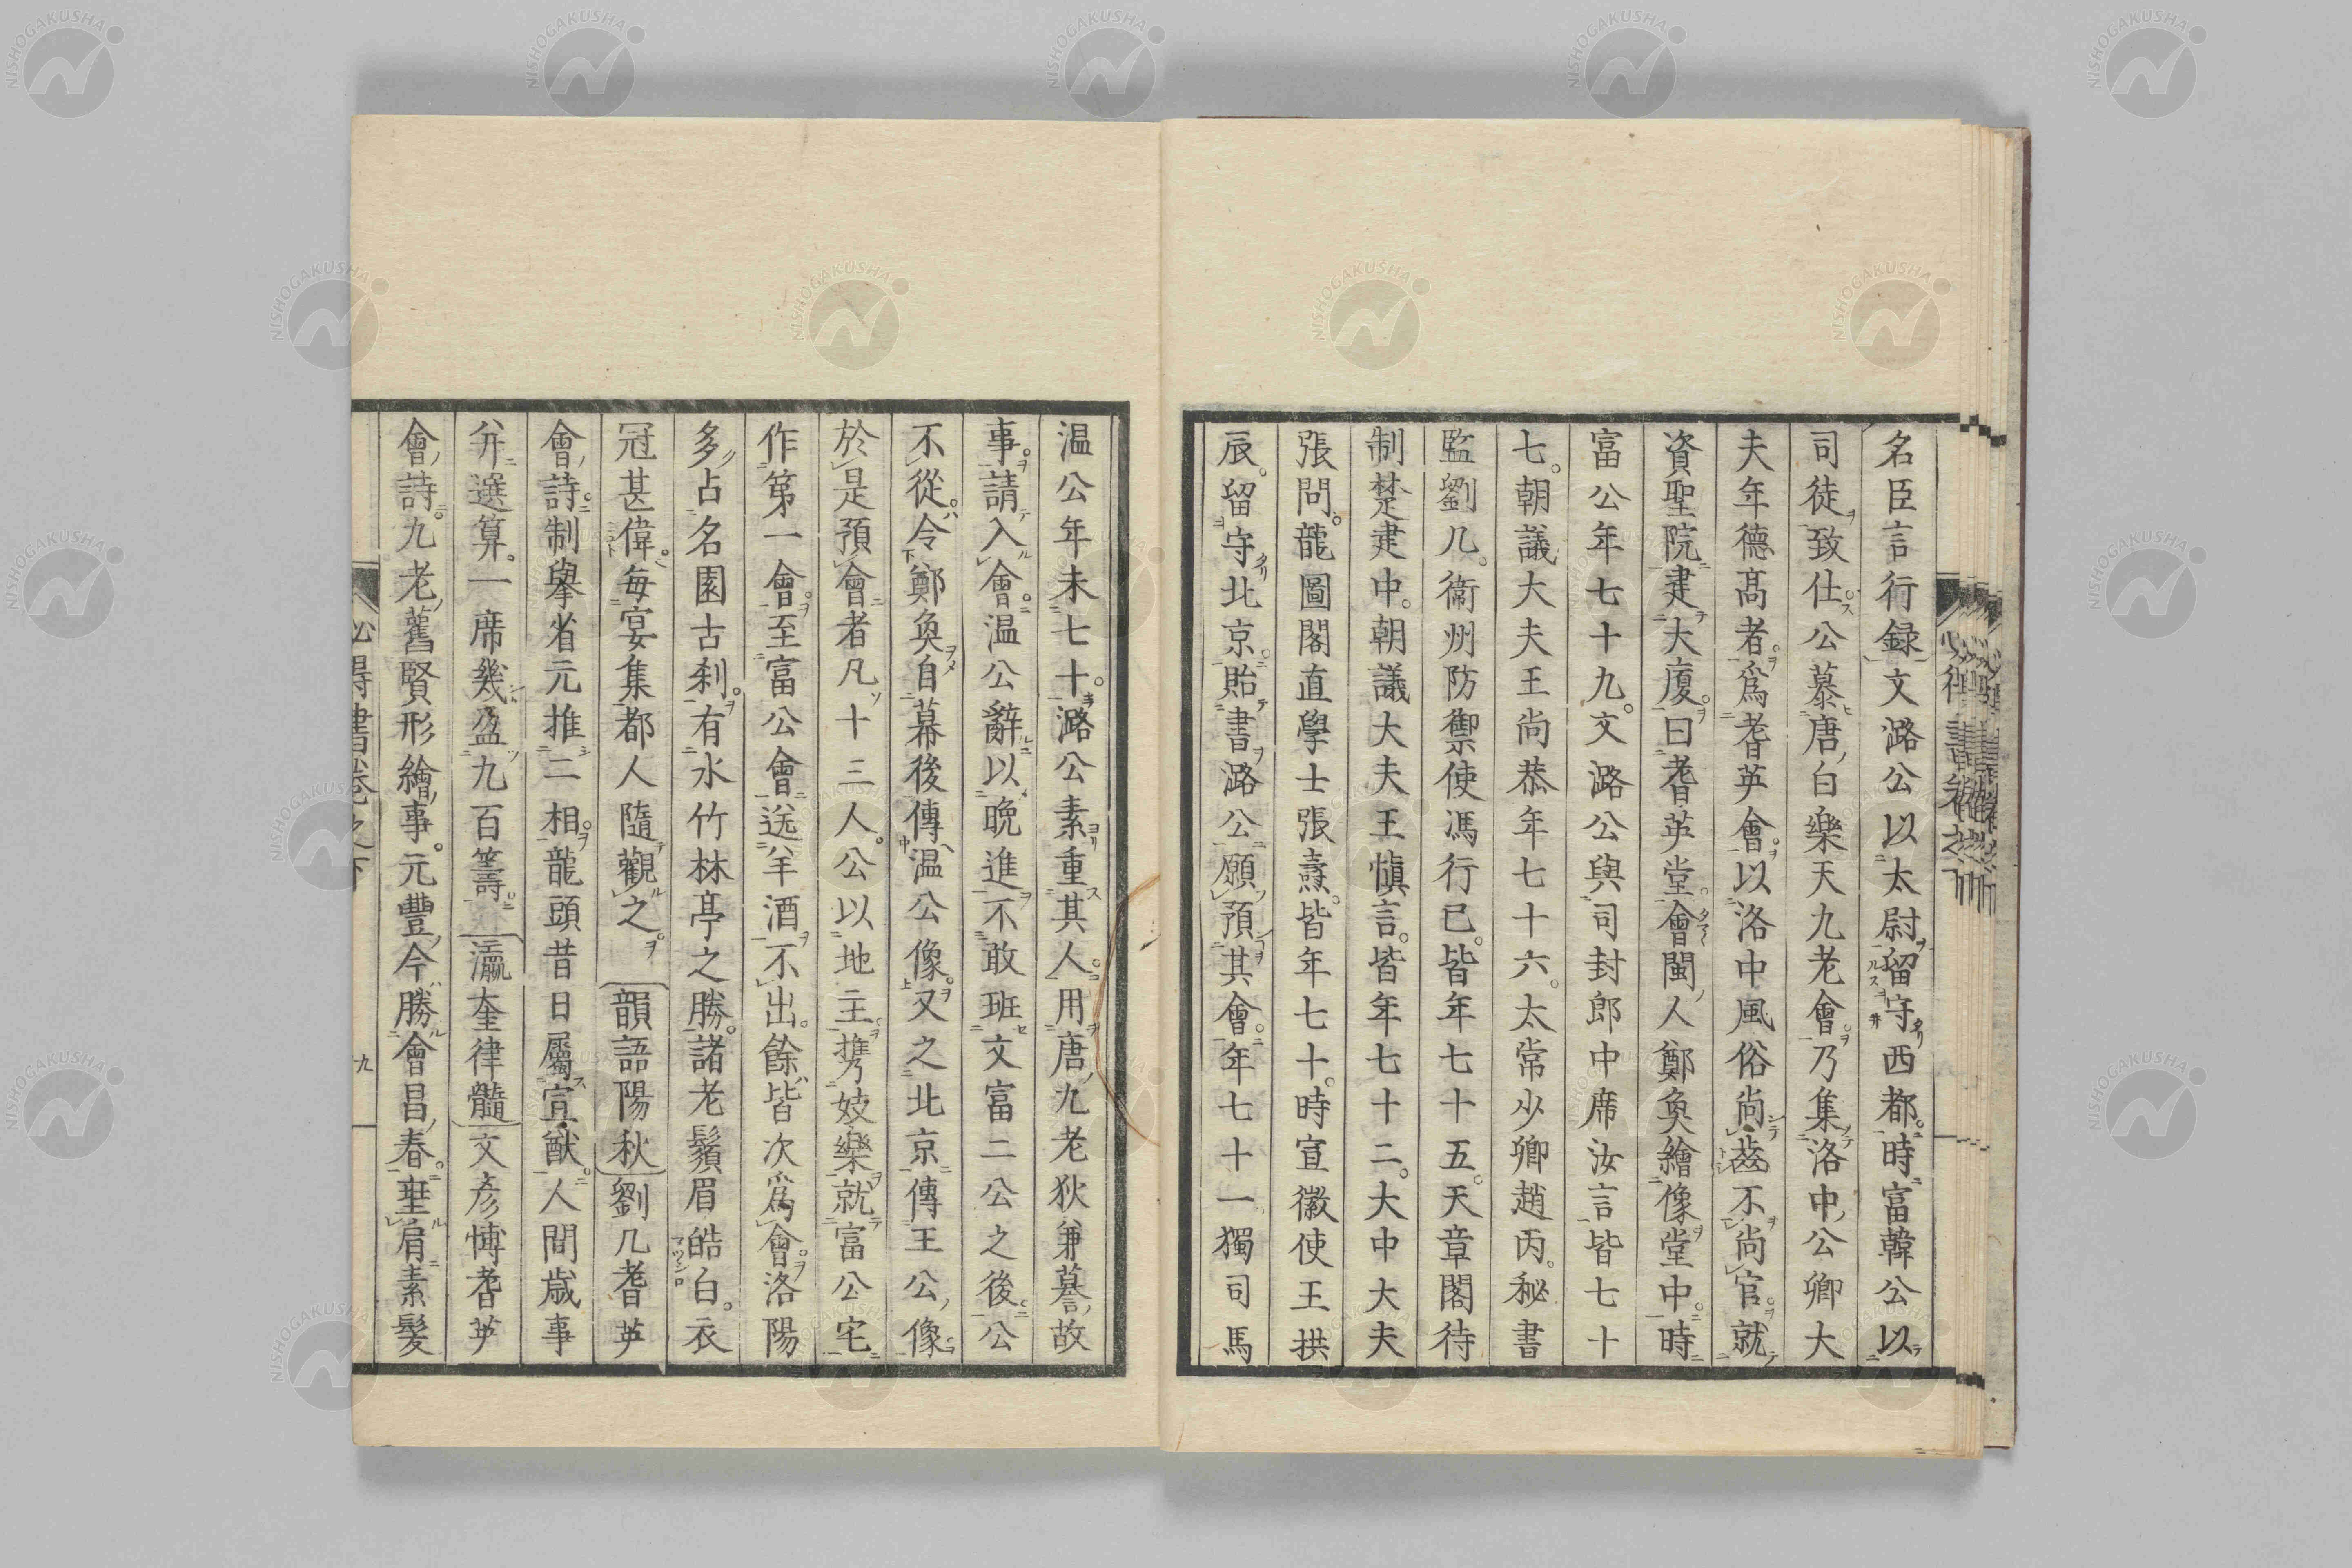 名臣言行録文潞公以太尉留守西都時富韓公以
司徒致仕公慕唐白樂天九老會乃集洛中公卿大
夫年德高者爲耆英會以洛中風俗尚齒不尚官就
資聖院建大廈曰耆英堂會閩人鄭奐繪像堂中時
富公年七十九文潞公與司封郎中席汝言皆七十
七朝議大夫王尚恭年七十六太常少卿趙丙秘書
監劉几衞州防禦使馮行已皆年七十五天章閣待
制楚建中朝議大夫王愼言皆年七十二大中大夫
張問龍圖閣直學士張燾皆年七十時宣徽使王拱
辰留守北京貽書潞公願預其會年七十一獨司馬
温公年未七十潞公素重其人用唐九老狄兼謩故
事請入會温公辭以晩進不敢班文富二公之後公
不從令鄭奐自幕後傳温公像又之北京傳王公像
於是預會者凡十三人公以地主擕妓樂就富公宅
作第一會至富公會送羊酒不出餘皆次爲會洛陽
多占名園古刹有水竹林亭之勝諸老鬚眉皓白衣
冠甚偉毎宴集都人隨觀之韻語陽秋劉几耆英
會詩制舉省元推二相龍頭昔日屬宣猷人間歳事
幷選算一席幾盈九百籌瀛奎律髓文彥博耆英
會詩九老舊賢形繪事元豐今勝會昌春埀肩素髮
心得書巻之下
九
NISHOGAKUSHA